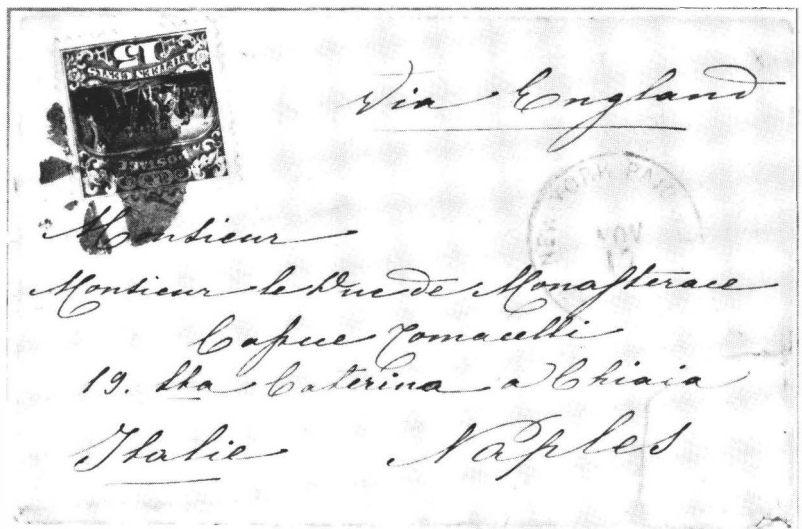 15
FIFTEEN CENTS
POSTAGE
Via England
NEW YORK PAID
NOV
Monsieur
Monsieur le Duc de Monasterace
Capece Tomacelli
19. Sta Caterina a Chiaia
Italie Naples